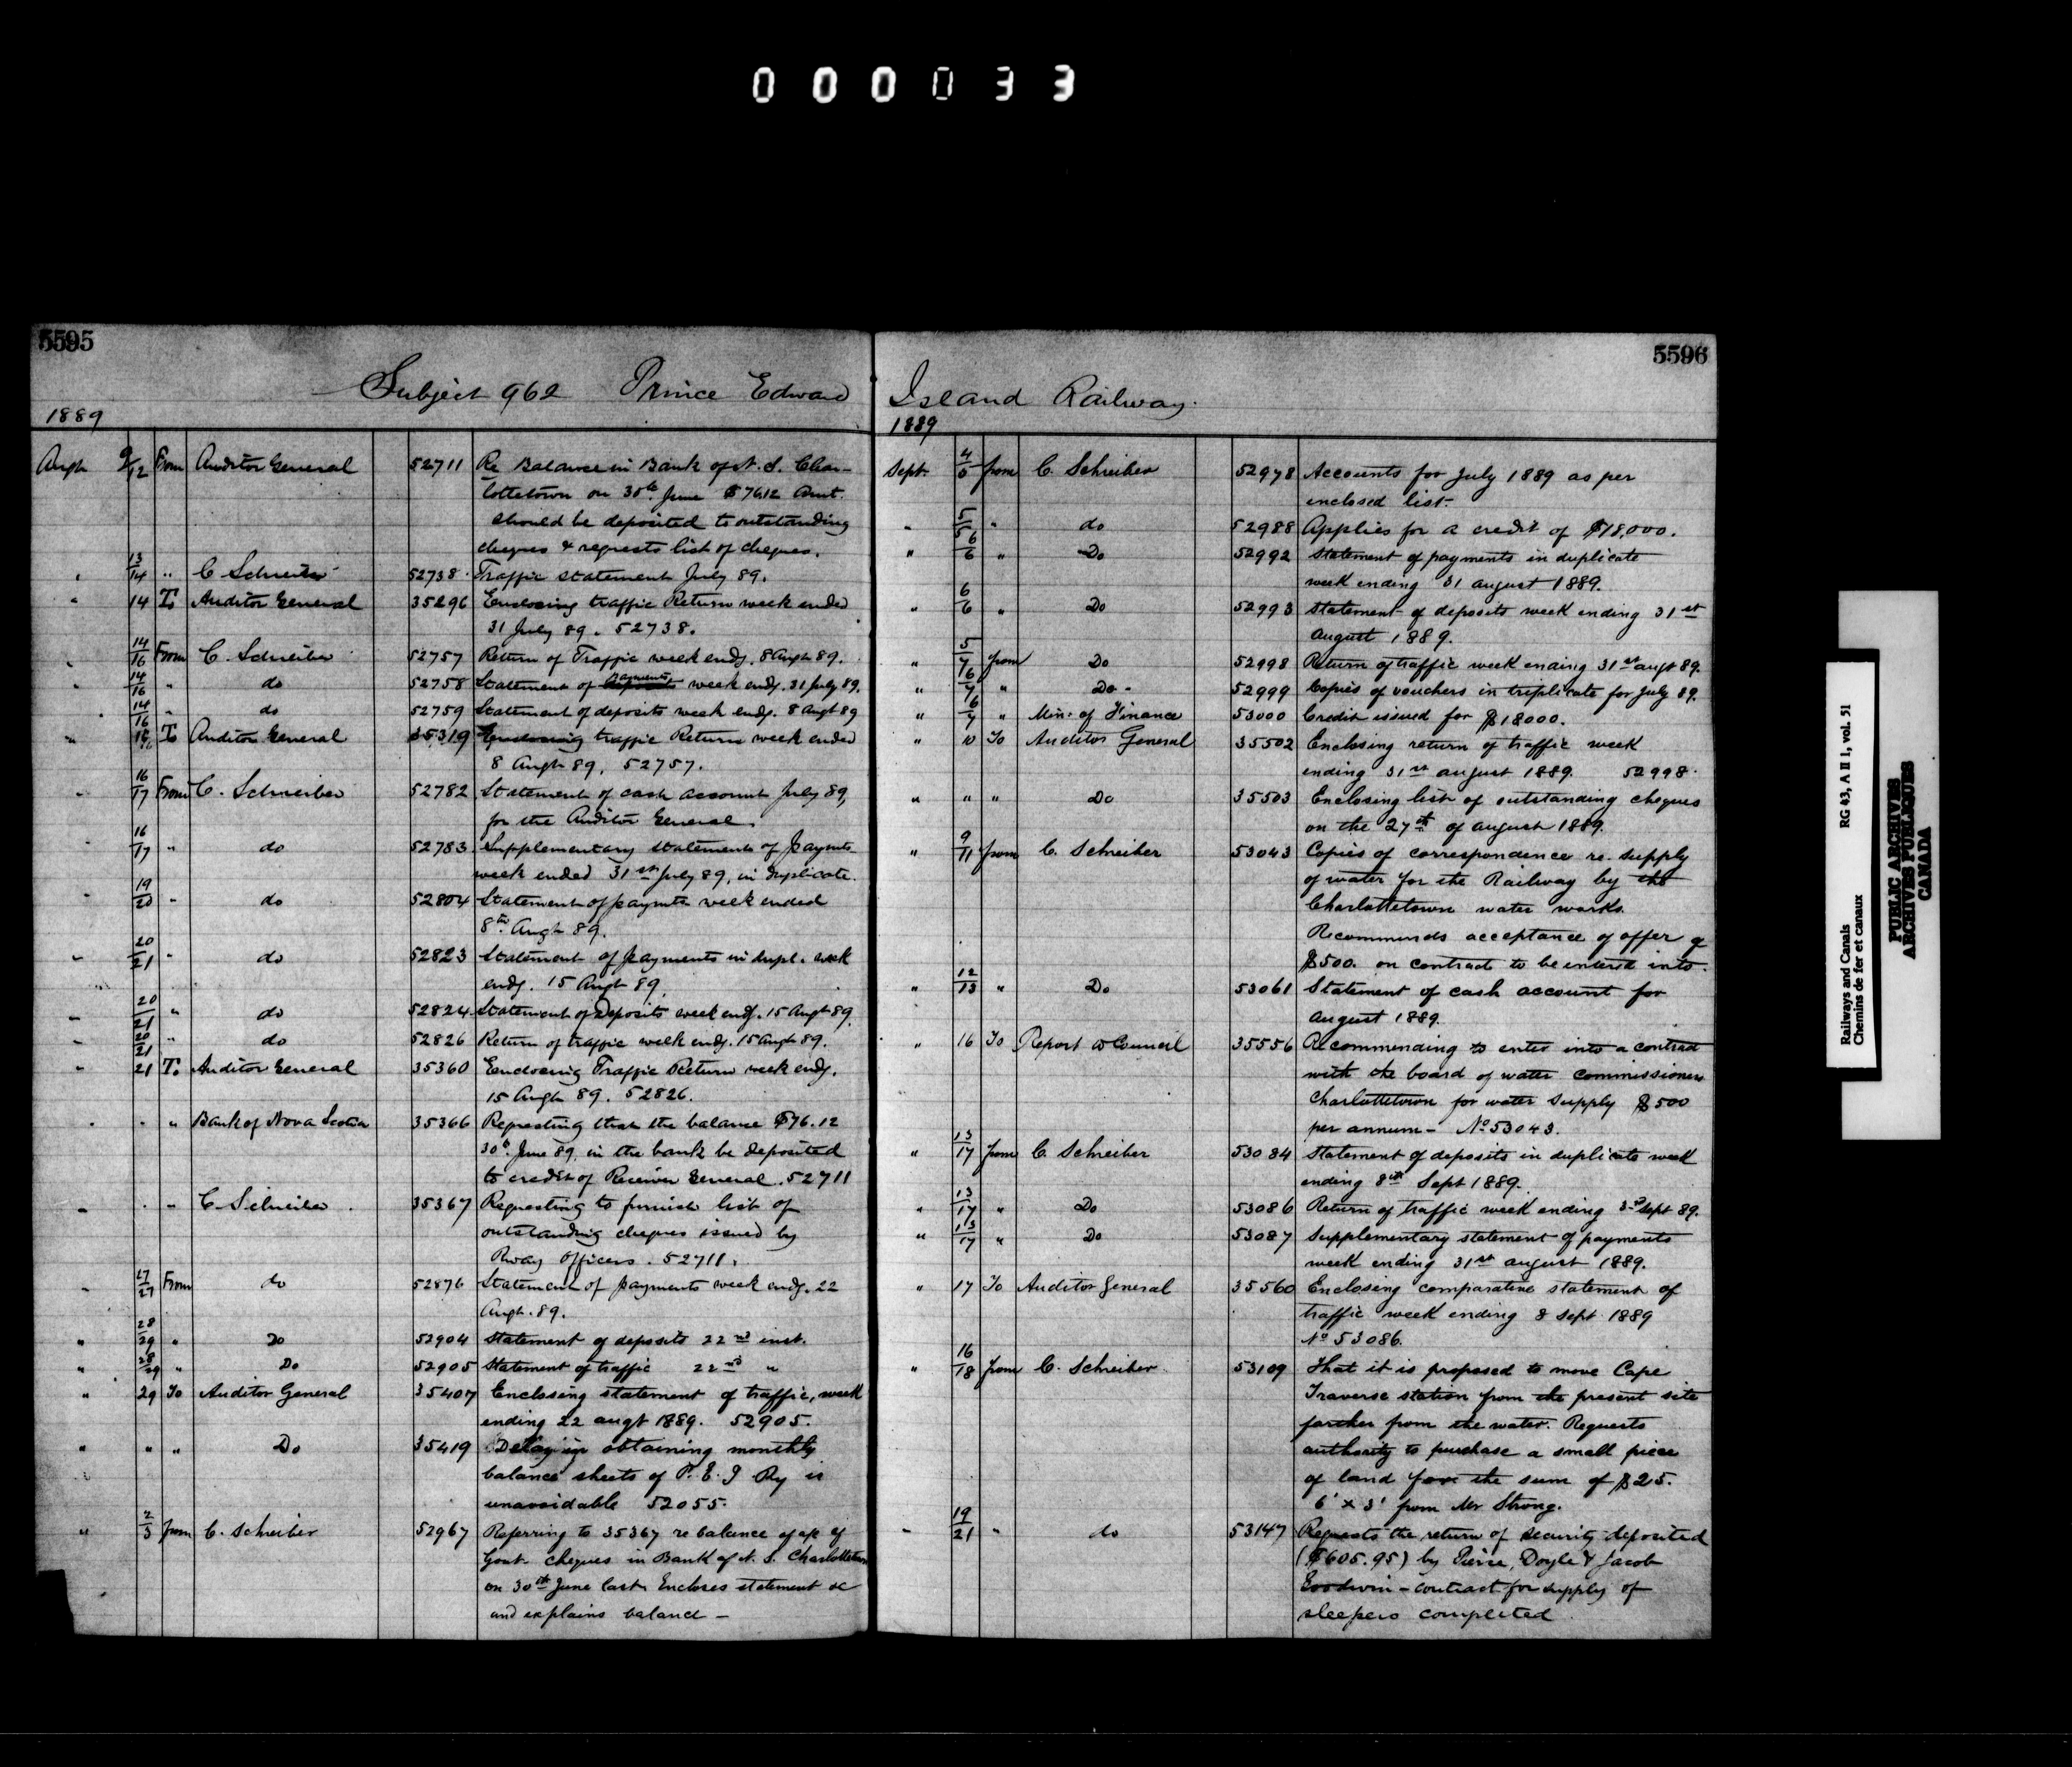 000033
5595
Subject 962 Prince Edward
1889
Augt 9/12 From Auditor General 52711 Re Balance in Bank of N. S. Char-
lottetown on 30th June $76.12 Amt.
should be deposited to outstanding
cheques & requests list of cheques.
" 13/14 " C Schreiber 52738 Traffic statement July 89.
" 14 To Auditor General 35296 Enclosing traffic Return week ended
31 July 89. 52738.
" 14/16 From C. Schreiber 52757 Return of Traffic week endg. 8 Augt 89.
" 14/16 " do 52758 Statement of payments week endg. 31 July 89.
" 14/16 " do 52759 Statement of deposits week endg. 8 Augt 89
" 16 To Auditor General 35319 Enclosing traffic Return week ended
8 Augt 89. 52757.
" 16/17 From C. Schreiber 52782 Statement of cash account July 89,
for the Auditor General.
" 16/17 " do 52783 Supplementary statement of paymts
week ended 31st July 89, in duplicate.
" 19/20 " do 52804 Statement of paymts week ended
8th Augt 89.
" 20/21 " do 52823 Statement of payments in dupl. week
endg. 15 Augt 89.
" 20/21 " do 52824 Statement of Deposits week endg. 15 Augt 89.
" 20/21 " do 52826 Return of traffic week endg. 15 Augt 89.
" 21 To Auditor General 35360 Enclosing Traffic Return week endg.
15 Augt 89. 52826.
" " " Bank of Nova Scotia 35366 Requesting that the balance $76.12
30th June 89, in the bank be deposited
to credit of Receiver General. 52711
" " " C. Schreiber 35367 Requesting to furnish list of
outstanding cheques issued by
Rway Officers. 52711.
" 27/27 From do 52876 Statement of payments week endg. 22
Augt. 89.
" 28/29 " Do 52904 Statement of deposits 22nd inst.
" 28/29 " Do 52905 Statement of traffic 22nd "
" 29 To Auditor General 35407 Enclosing statement of traffic, week
ending 22 augt 1889. 52905.
" " " Do 35419 Delay in obtaining monthly
balance sheets of P. E. I Ry is
unavoidable 52055.
" 2/3 from C. Schreiber 52967 Referring to 35367 re balance of a/c of
Govt. cheques in Bank of N. S. Charlottetown
on 30th June last. Encloses statement &c
and explains balance -
5596
Island Railway.
1889
Sept. 4/5 from C. Schreiber 52978 Accounts for July 1889 as per
enclosed list.
" 5/5 " do 52988 Applies for a credit of $18,000.
" 6/6 " Do 52992 Statement of payments in duplicate
week ending 31 august 1889.
" 6/6 " Do 52993 Statement of deposits week ending 31st
August 1889.
" 5/7 from Do 52998 Return of traffic week ending 31st augt 89.
" 6/7 " Do - 52999 Copies of vouchers in triplicate for July 89.
" 6/7 " Min. of Finance 53000 Credit issued for $18000.
" 10 To Auditor General 35502 Enclosing return of traffic week
ending 31st august 1889. 52998.
" " " Do 35503 Enclosing list of outstanding cheques
on the 27th of august 1889.
" 9/11 from C. Schreiber 53043 Copies of correspondence re. supply
of water for the Railway by the
Charlottetown water works.
Recommends acceptance of offer of
$500. on contract to be entered into.
" 12/13 " Do 53061 Statement of cash account for
August 1889.
" 16 To Report to Council 35556 Recommending to enter into a contract
with the board of water commissioners
Charlottetown for water supply $500
per annum - No 53043.
" 13/17 from C. Schreiber 53084 Statement of deposits in duplicate week
ending 8th Sept 1889.
" 13/17 " Do 53086 Return of traffic week ending sept 89.
" 13/17 " Do 53087 Supplementary statement of payments
week ending 31st august 1889.
" 17 To Auditor General 35560 Enclosing comparative statement of
traffic week ending 8 Sept 1889
No 53086.
" 16/18 from C. Schreiber 53109 That it is proposed to move Cape
Traverse station from the present site
farther from the water. Requests
authority to purchase a small piece
of land for the sum of $25.
6' x 3' from Mr Strong.
" 19/21 " do 53147 Requests the return of security deposited
($605.95) by Peirie, Doyle & Jacob
Goodwin - contract for supply of
sleepers completed
Railways and Canals RG 43, A II 1, vol. 51
Chemins de fer et canaux
PUBLIC ARCHIVES
ARCHIVES PUBLIQUES
CANADA